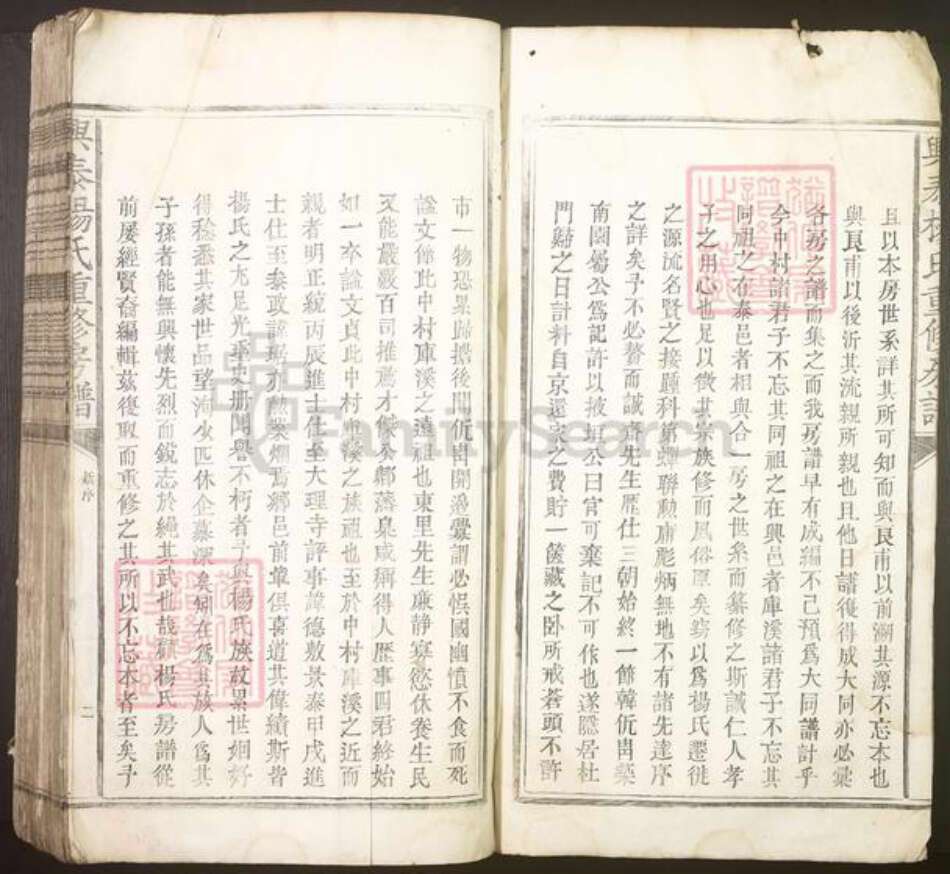 且以本房世系詳其所可知而與艮甫以前溯其源不忘本也
與艮甫以後沂其流親所親也且他日譜復得成大同亦必彙
各房之譜而集之而我房譜早有成編不已預爲大同譜計乎
今中村諸君子不忘其同祖之在興邑者庫溪諸君子不忘其
同祖之在泰邑者相與合一房之世系而纂修之斯誠仁人孝
子之用心也足以徵其宗族修而風俗厚矣竊以爲楊氏遷徙
之源流名賢之接踵科第蟬聯勳庸彪炳無地不有諸先達序
之詳矣予不必贅而誠齋先生歷仕三朝始終一節韓侂冑築
南園屬公爲記許以掖垣公曰官可棄記不可作也遂隱居杜
門辭之日計料自京還家之費貯一篋藏之卧所戒蒼頭不許
市一物恐累歸擔後聞侂冑開邊釁謂必悞國幽憤不食而死
諡文節此中村庫溪之遠祖也東里先生廉静寡慾休養生民
又能嚴覈百司推薦才俊公卿藩臬咸稱得人歷事四君終始
如一卒諡文貞此中村庫溪之族祖也至於中村庫溪之近而
親者明正統丙辰進士仕至大理寺評事諱德敷景泰甲戌進
士仕至參政諱琚亦勲業爛焉鄉邑前輩俱喜道其偉績斯皆
楊氏之尤足光乘史册聞譽不朽者予與楊氏族故累世姻好
得稔悉其家世品望洵少匹休企慕深矣矧在爲其族人爲其
子孫者能無興懷先烈而銳志於繩其武也哉顧楊氏房譜從
前屡經賢裔編輯茲復取而重修之其所以不忘本者至矣予
興泰楊氏重修房譜
新序
二
FamilySearch